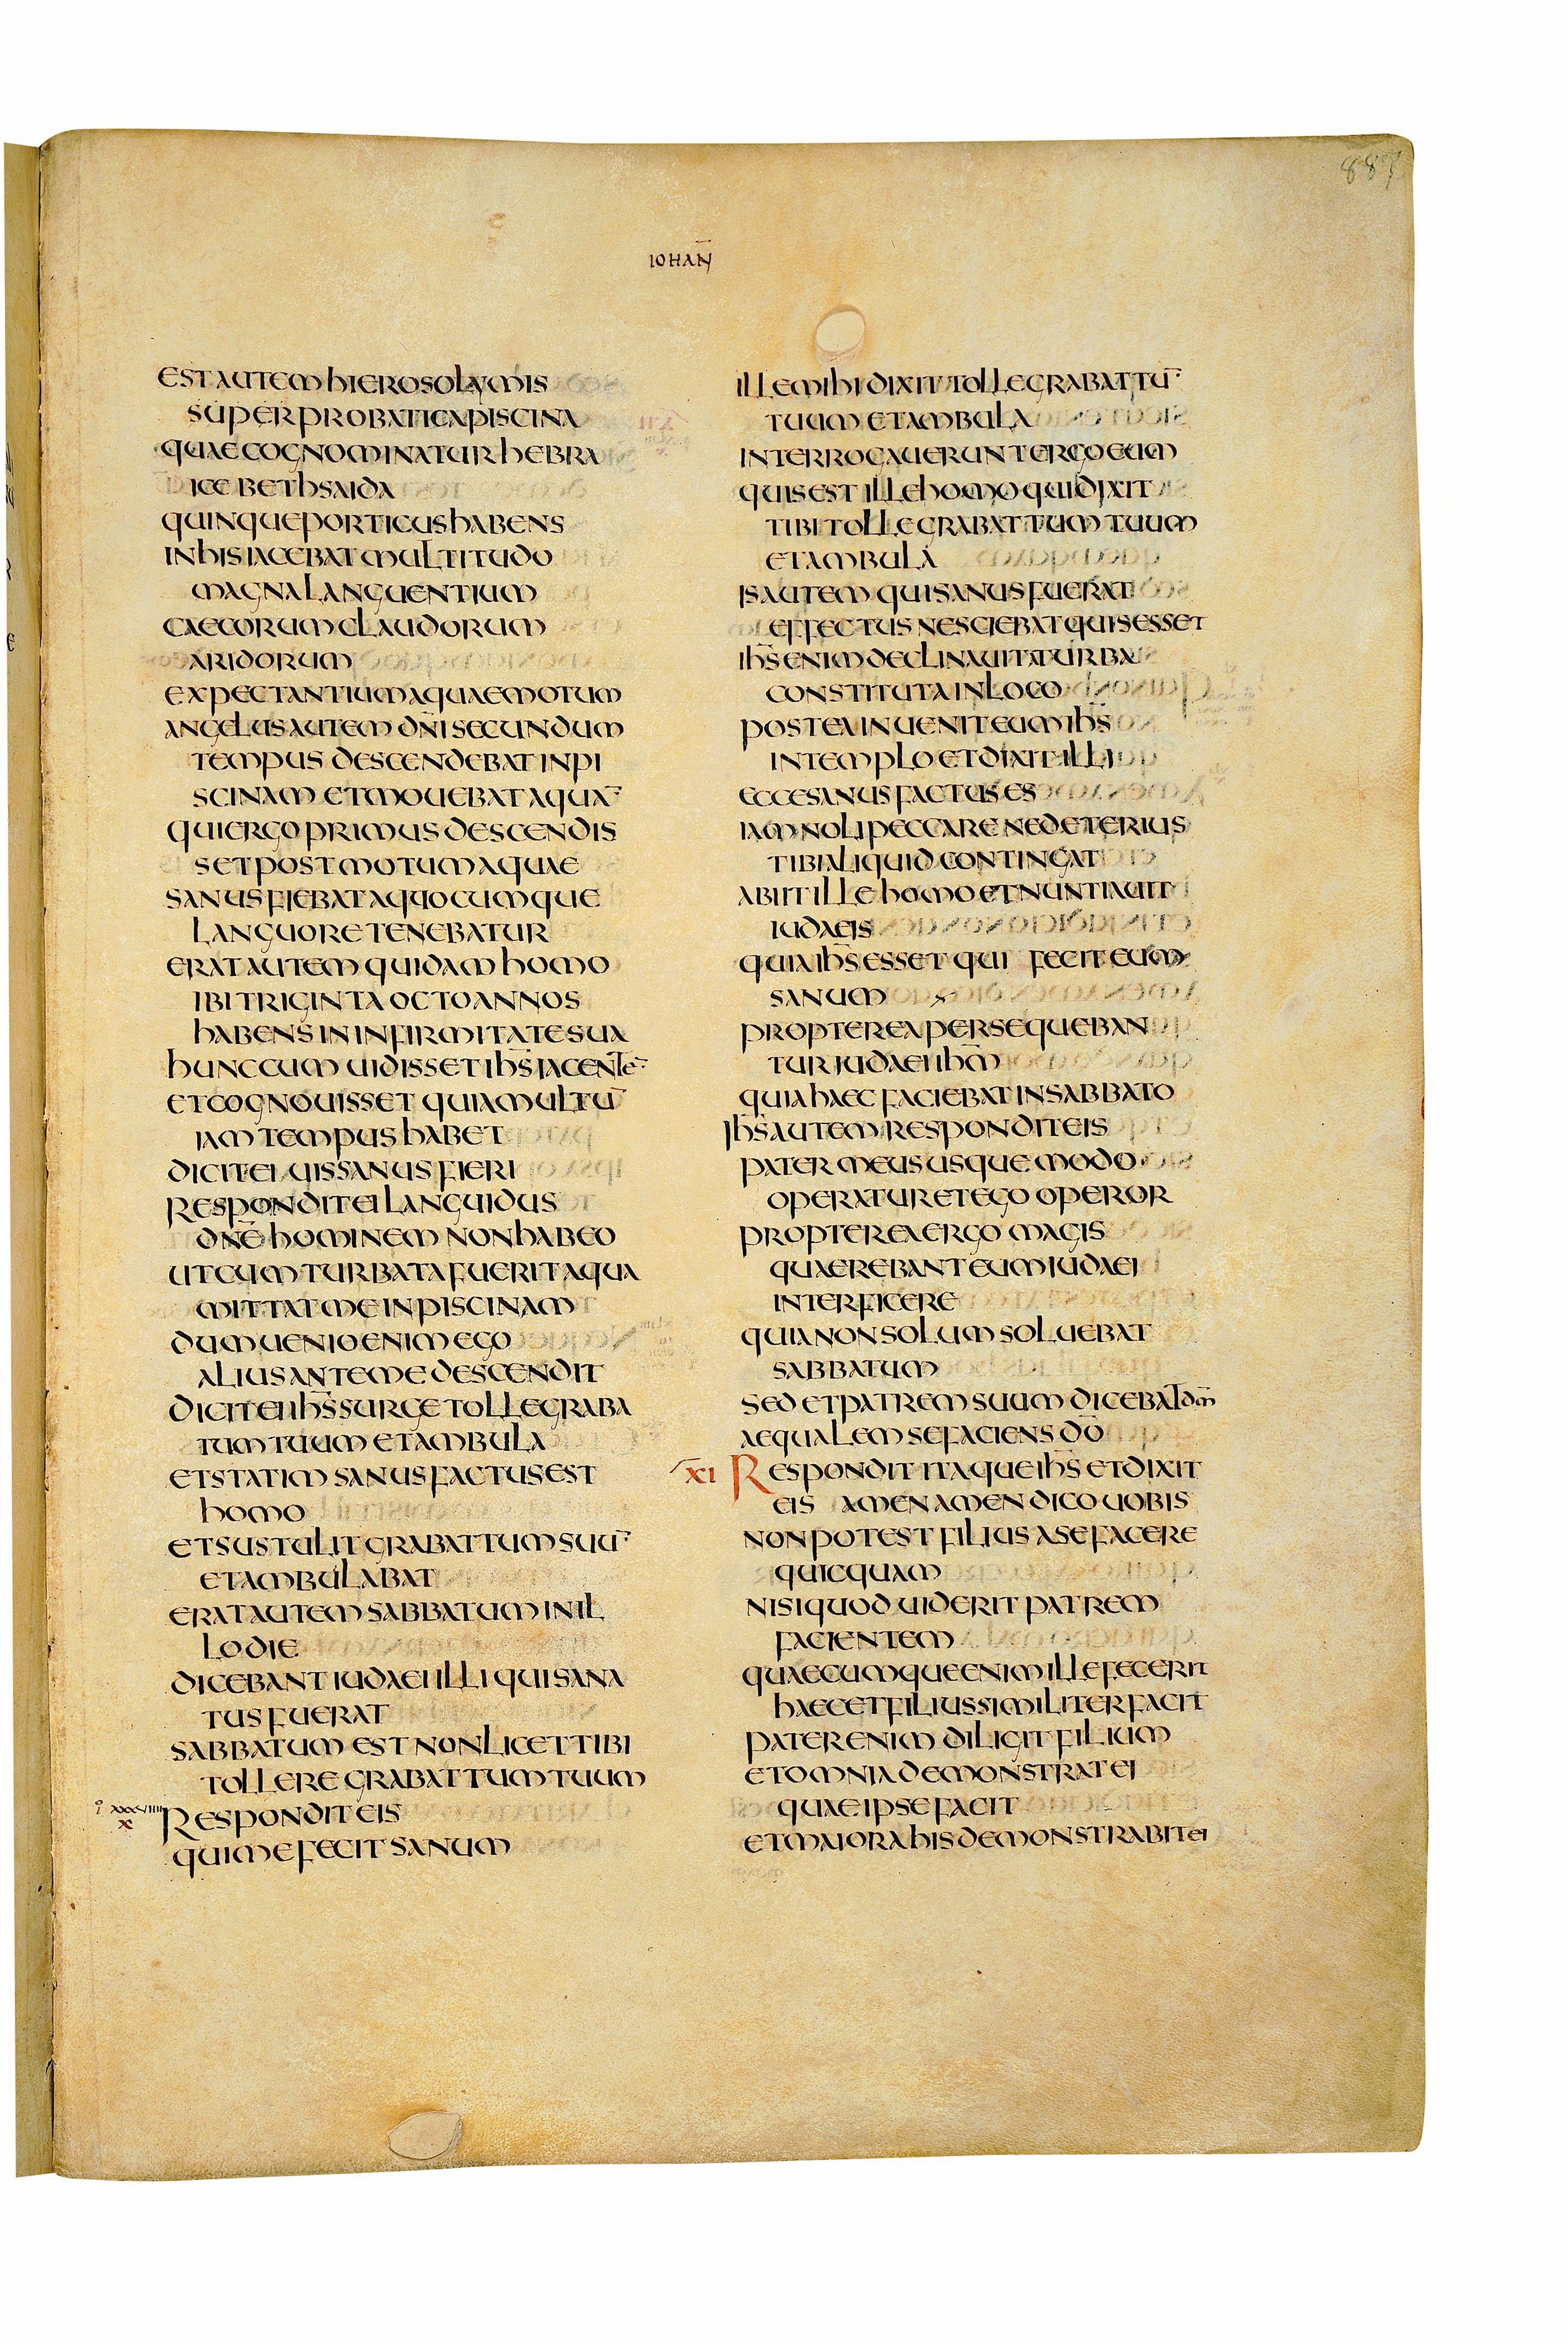 887
IOHAN̄
EST AUTEM HIEROSOLYMIS
SUPER PROBATICA PISCINA
QUAE COGNOMINATUR HEBRA
ICE BETHSAIDA
QUINQUE PORTICUS HABENS
IN HIS IACEBAT MULTITUDO
MAGNA LANGUENTIUM
CAECORUM CLAUDORUM
ARIDORUM
EXPECTANTIUM AQUAE MOTUM
ANGELUS AUTEM DN̄I SECUNDUM
TEMPUS DESCENDEBAT IN PI
SCINAM ET MOUEBAT AQUĀ
QUI ERGO PRIMUS DESCENDIS
SET POST MOTUM AQUAE
SANUS FIEBAT A QUOCUMQUE
LANGUORE TENEBATUR
ERAT AUTEM QUIDAM HOMO
IBI TRIGINTA OCTO ANNOS
HABENS IN INFIRMITATE SUA
HUNC CUM UIDISSET IHS̄ IACENTĒ
ET COGNOUISSET QUIA MULTŪ
IAM TEMPUS HABET
DICIT EI UIS SANUS FIERI
RESPONDIT EI LANGUIDUS
DNĒ HOMINEM NON HABEO
UT CUM TURBATA FUERIT AQUA
MITTAT ME IN PISCINAM
DUM UENIO ENIM EGO
ALIUS ANTE ME DESCENDIT
DICIT EI IHS̄ SURGE TOLLE GRABA
TUM TUUM ET AMBULA
ET STATIM SANUS FACTUS EST
HOMO
ET SUSTULIT GRABATTUM SUŪ
ET AMBULABAT
ERAT AUTEM SABBATUM IN IL
LO DIE
DICEBANT IUDAEI ILLI QUI SANA
TUS FUERAT
SABBATUM EST NON LICET TIBI
TOLLERE GRABATTUM TUUM
XXXVIIII
X
RESPONDIT EIS
QUI ME FECIT SANUM
ILLE MIHI DIXIT TOLLE GRABATTŪ
TUUM ET AMBULA
INTERROGAUERUNT ERGO EUM
QUIS EST ILLE HOMO QUI DIXIT
TIBI TOLLE GRABATTUM TUUM
ET AMBULA
IS AUTEM QUI SANUS FUERAT
EFFECTUS NESCIEBAT QUIS ESSET
IHS̄ ENIM DECLINAUIT A TURBA
CONSTITUTA IN LOCO
POSTEA INUENIT EUM IHS̄
IN TEMPLO ET DIXIT ILLI
ECCE SANUS FACTUS ES
IAM NOLI PECCARE NE DETERIUS
TIBI ALIQUID CONTINGAT
ABIIT ILLE HOMO ET NUNTIAUIT
IUDAEIS
QUIA IHS̄ ESSET QUI FECIT EUM
SANUM
PROPTEREA PERSEQUEBAN
TUR IUDAEI IHM̄
QUIA HAEC FACIEBAT IN SABBATO
IHS̄ AUTEM RESPONDIT EIS
PATER MEUS USQUE MODO
OPERATUR ET EGO OPEROR
PROPTEREA ERGO MAGIS
QUAEREBANT EUM IUDAEI
INTERFICERE
QUIA NON SOLUM SOLUEBAT
SABBATUM
SED ET PATREM SUUM DICEBAT DM̄
AEQUALEM SE FACIENS DŌ
XI RESPONDIT ITAQUE IHS̄ ET DIXIT
EIS AMEN AMEN DICO UOBIS
NON POTEST FILIUS A SE FACERE
QUICQUAM
NISI QUOD UIDERIT PATREM
FACIENTEM
QUAECUMQUE ENIM ILLE FECERIT
HAEC ET FILIUS SIMILITER FACIT
PATER ENIM DILIGIT FILIUM
ET OMNIA DEMONSTRAT EI
QUAE IPSE FACIT
ET MAIORA HIS DEMONSTRABIT EI